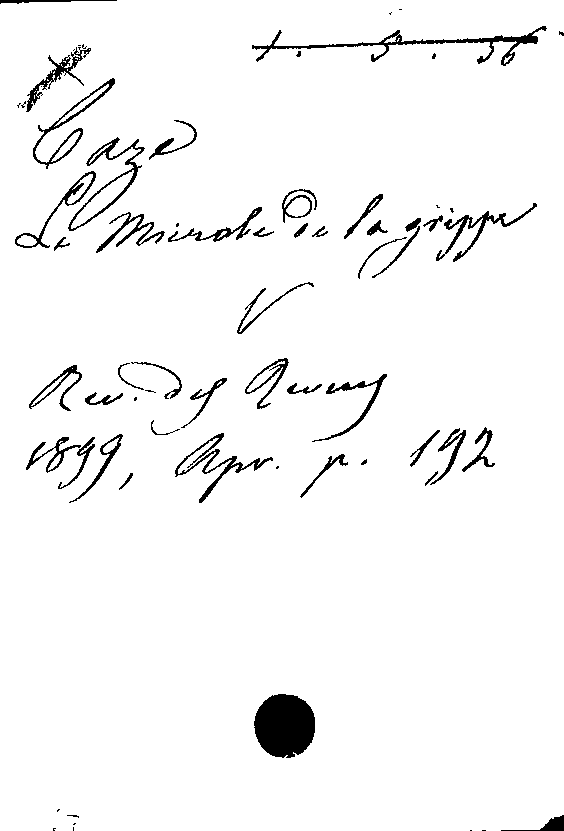 1. 5. 56
Caze
Le Microbe de la grippe
V
Rev. des Revues
1899, Apr. p. 192